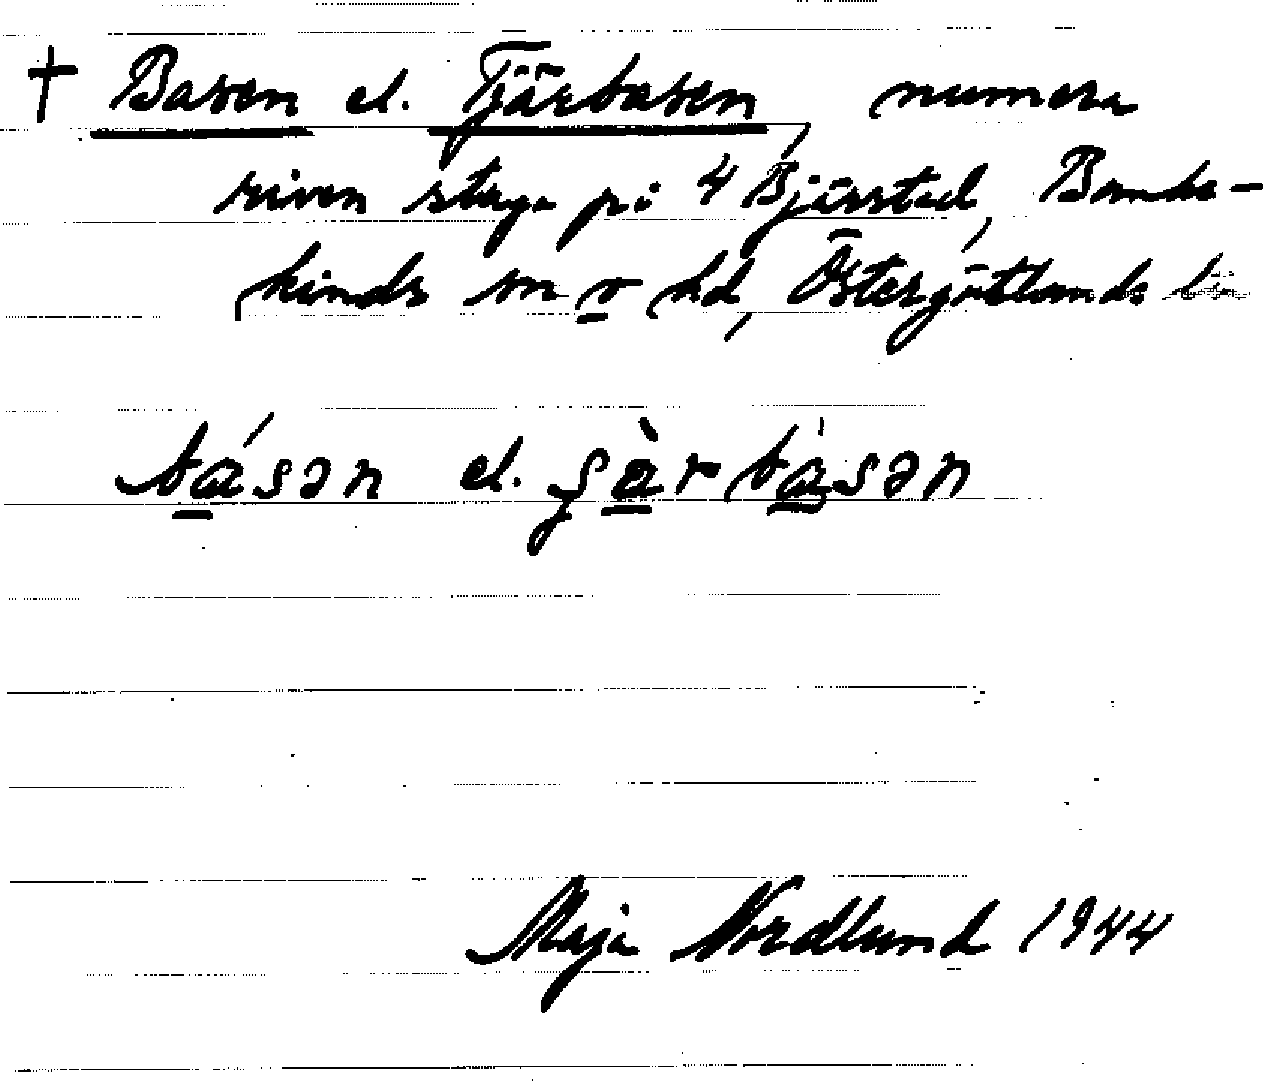 † Basen el. Tjärbasen, numera
riven stuga på 4 Bjärstad, Banke-
kinds sn o hd, Östergötlands län
bása̱n el. ʂä̀rbàsən
Maja Nordlund 1944